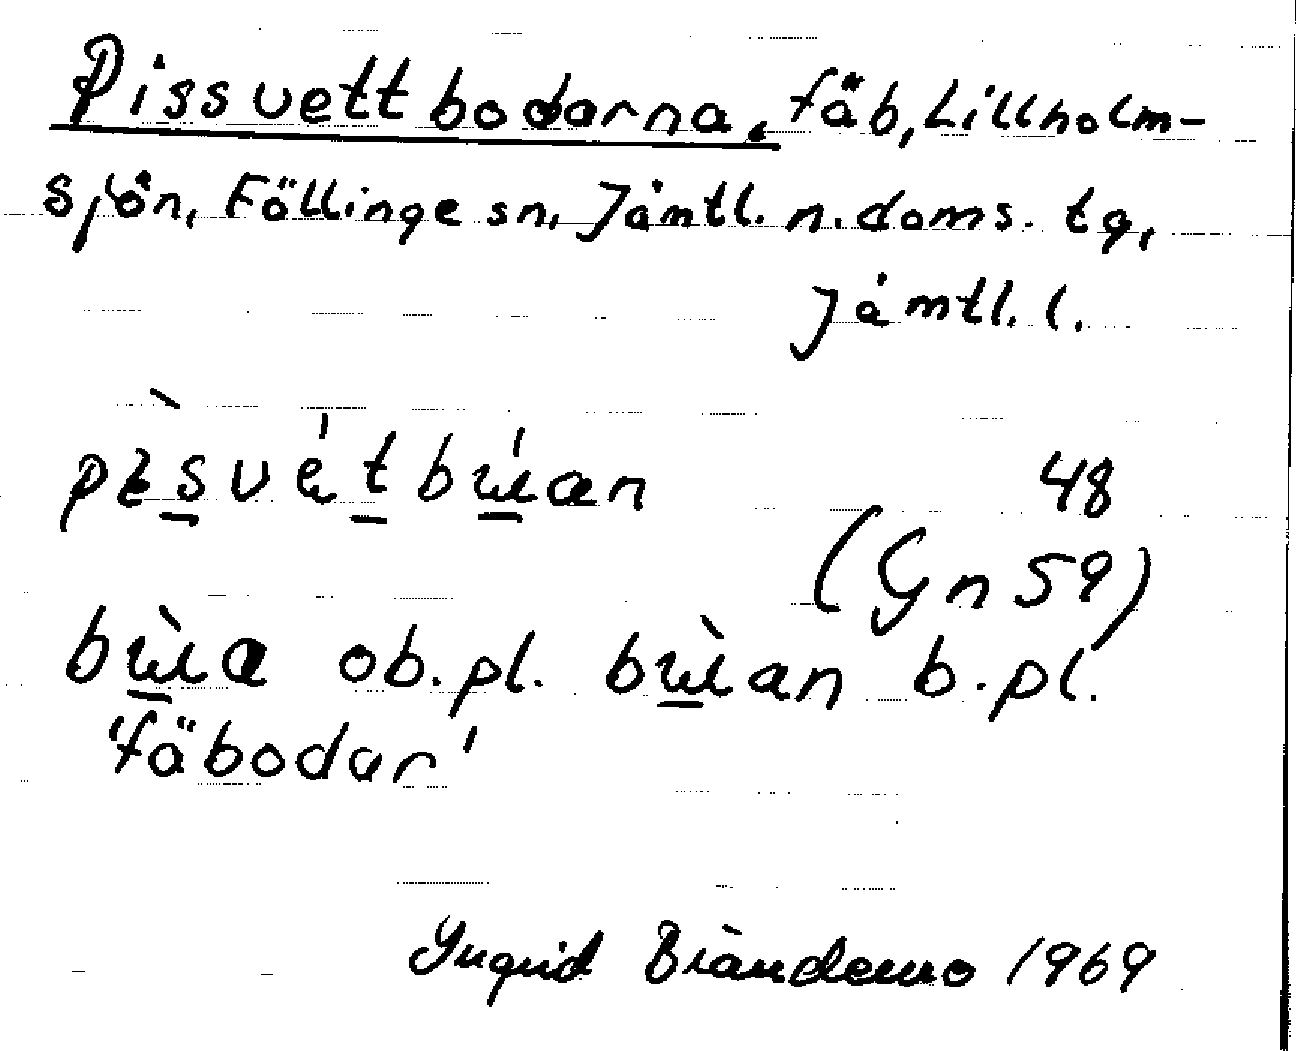 Pissvettbodarna, fäb, Lillholm-
sjön, Föllinge sn, Jämtl. n. doms. tg,
Jämtl. l.
48
(Gn 59)
ob.pl. b.pl.
'fäbodar'
Ingrid Brändemo 1969